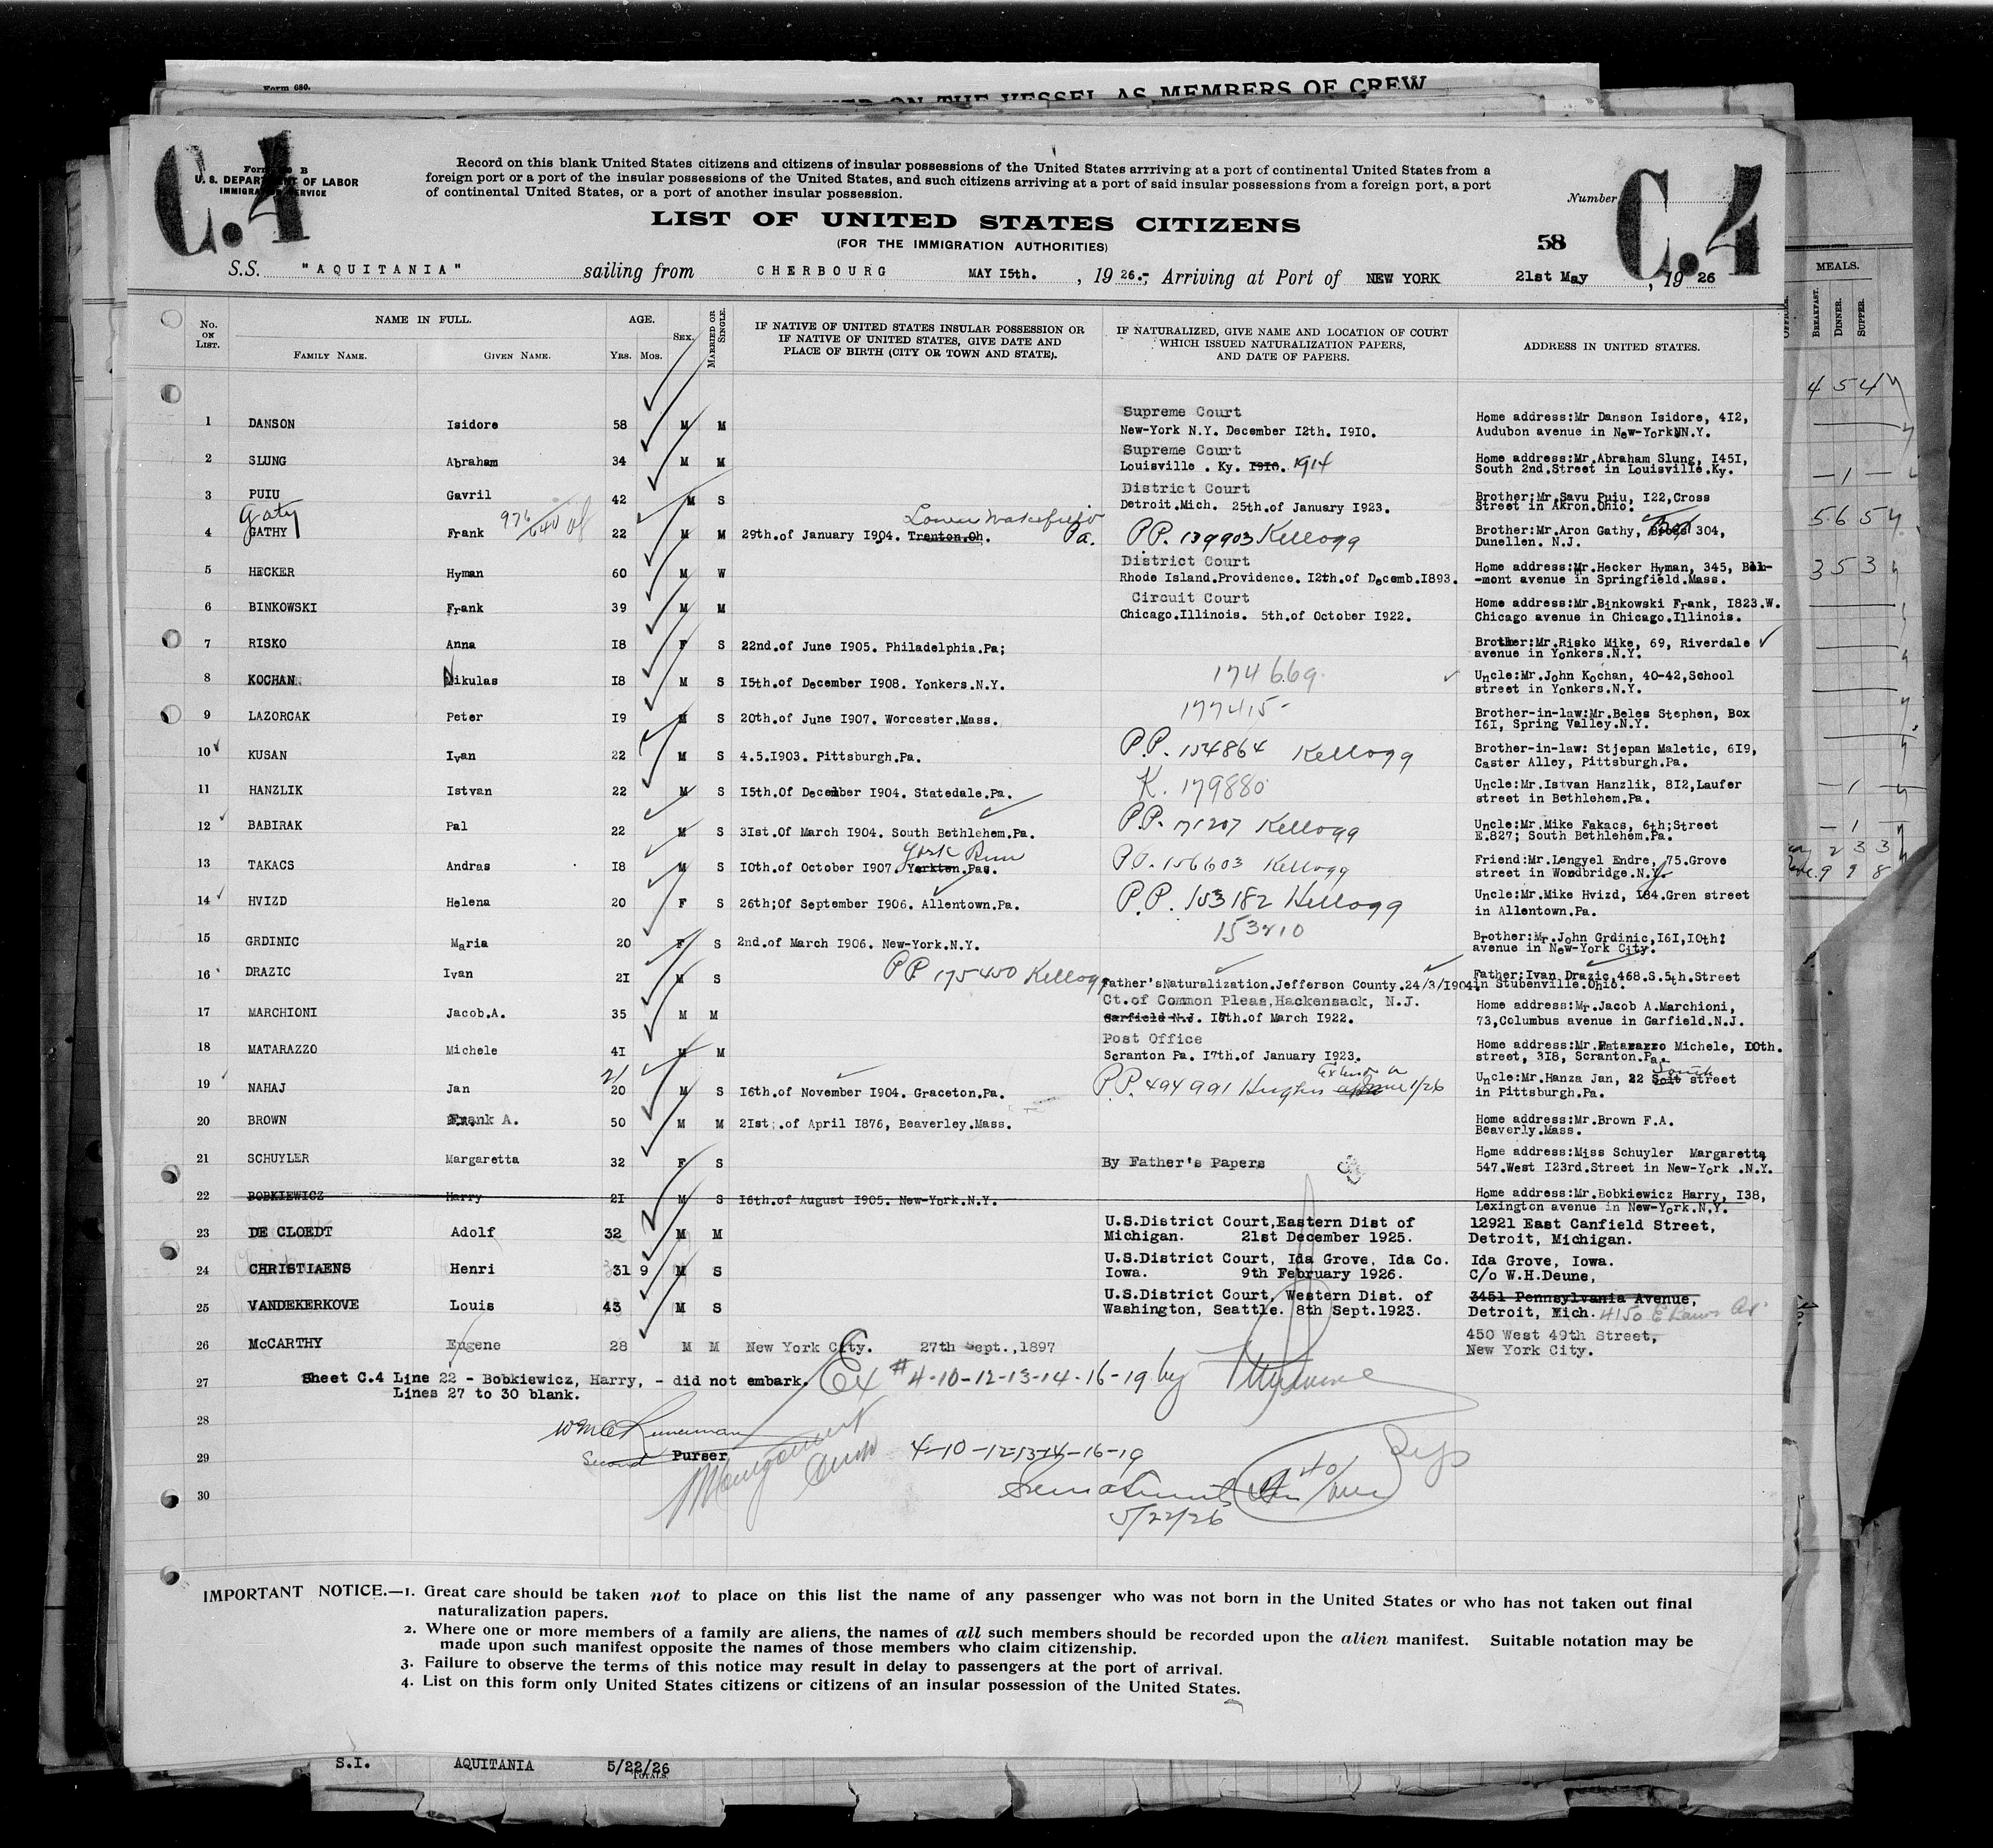 Form 680.
ON THE VESSEL AS MEMBERS OF CREW
C.4
Form B
U. S. DEPARTMENT OF LABOR
IMMIGRATION SERVICE
Record on this blank United States citizens and citizens of insular possessions of the United States arrriving at a port of continental United States from a
foreign port or a port of the insular possessions of the United States, and such citizens arriving at a port of said insular possessions from a foreign port, a port
of continental United States, or a port of another insular possession.
Number
C.4
LIST OF UNITED STATES CITIZENS
(FOR THE IMMIGRATION AUTHORITIES)
58
S.S. "AQUITANIA" sailing from CHERBOURG MAY I5th. , 19 26.- ; Arriving at Port of NEW YORK 21st May , 19 26
No. ON LIST.
NAME IN FULL.
FAMILY NAME. GIVEN NAME.
AGE.
Yrs. Mos.
SEX.
MARRIED OR SINGLE.
IF NATIVE OF UNITED STATES INSULAR POSSESSION OR
IF NATIVE OF UNITED STATES, GIVE DATE AND
PLACE OF BIRTH (CITY OR TOWN AND STATE).
IF NATURALIZED, GIVE NAME AND LOCATION OF COURT
WHICH ISSUED NATURALIZATION PAPERS,
AND DATE OF PAPERS.
ADDRESS IN UNITED STATES.
MEALS.
BREAKFAST. DINNER. SUPPER.
1 DANSON Isidore 58 M M Supreme Court Home address:Mr Danson Isidore, 4I2,
New-York N.Y. December I2th. I9I0. Audubon avenue in New-York N.Y.
2 SLUNG Abraham 34 M M Supreme Court Home address:Mr.Abraham Slung, I45I,
Louisville . Ky. I9I0. 1914 South 2nd.Street in Louisville.Ky.
3 PUIU Gavril 42 M S District Court Brother:Mr.Savu Puiu, I22,Cross
Detroit.Mich. 25th.of January I923. Street in Akron.Ohio.
Gaty 976/640 Lower Wakefield
4 GATHY Frank 22 M M 29th.of January I904. Trenton.Oh. Pa. P.P. 139903 Kellogg Brother:Mr.Aron Gathy, Box 304,
Dunellen. N.J.
5 HECKER Hyman 60 M W District Court Home address:Mr.Hecker Hyman, 345, Bel-
Rhode Island.Providence. I2th.of Decemb.I893. -mont avenue in Springfield.Mass.
6 BINKOWSKI Frank 39 M M Circuit Court Home address:Mr.Binkowski Frank, I823.W.
Chicago.Illinois. 5th.of October I922. Chicago avenue in Chicago.Illinois.
7 RISKO Anna I8 F S 22nd.of June I905. Philadelphia.Pa; Brother:Mr.Risko Mike, 69, Riverdale
avenue in Yonkers.N.Y.
8 KOCHAN Nikulas I8 M S I5th.of December I908. Yonkers.N.Y. 174669. Uncle:Mr.John Kochan, 40-42,School
street in Yonkers.N.Y.
9 LAZORCAK Peter I9 M S 20th.of June I907. Worcester.Mass. 177415- Brother-in-law:Mr.Beles Stephen, Box
I6I, Spring Valley.N.Y.
10 KUSAN Ivan 22 M S 4.5.I903. Pittsburgh.Pa. P.P. 154864 Kellogg Brother-in-law: Stjepan Maletic, 6I9,
Caster Alley, Pittsburgh.Pa.
11 HANZLIK Istvan 22 M S I5th.Of December I904. Statedale.Pa. K. 179880 Uncle:Mr.Istvan Hanzlik, 8I2,Laufer
street in Bethlehem.Pa.
12 BABIRAK Pal 22 M S 3Ist.Of March I904. South Bethlehem.Pa. P.P. 171207 Kellogg Uncle:Mr.Mike Fakacs, 6th;Street
E.827; South Bethlehem.Pa.
York Run
13 TAKACS Andras I8 M S I0th.of October I907. Yorkton.Pas. P.P. 156603 Kellogg Friend:Mr.Lengyel Endre, 75.Grove
street in Woodbridge.N.J.
14 HVIZD Helena 20 F S 26th;Of September I906. Allentown.Pa. P.P. 153182 Kellogg Uncle:Mr.Mike Hvizd, I84.Gren street
in Allentown.Pa.
15 GRDINIC Maria 20 F S 2nd.of March I906. New-York.N.Y. 153210 Brother:Mr.John Grdinic,I6I,I0th;
avenue in New-York City.
16 DRAZIC Ivan 2I M S P.P. 175450 Kellogg Father'sNaturalization.Jefferson County.24/3/I904. Father:Ivan Drazic,468.S.5th.Street
in Stubenville.Ohio.
17 MARCHIONI Jacob.A. 35 M M Ct.of Common Pleas,Hackensack, N.J. Home address:Mr.Jacob A.Marchioni,
Garfield N.J. I0th.of March I922. 73,Columbus avenue in Garfield.N.J.
18 MATARAZZO Michele 4I M M Post Office Home address:Mr.Matarazzo Michele, I0th.
Scranton Pa. I7th.of January I923. street, 3I8, Scranton.Pa.
21 Extension South
19 NAHAJ Jan 20 M S I6th.of November I904. Graceton.Pa. P.P. 494991 Hughes June 1/26 Uncle:Mr.Hanza Jan, 22 Soit street
in Pittsburgh.Pa.
20 BROWN Frank A. 50 M M 2Ist;.of April I876, Beaverley.Mass. Home address:Mr.Brown F.A.
Beaverly.Mass.
21 SCHUYLER Margaretta 32 F S By Father's Papers Home address:Miss Schuyler Margaretta
547.West I23rd.Street in New-York .N.Y.
22 BOBKIEWICZ Harry 2I M S I6th.of August I905. New-York.N.Y. Home address:Mr.Bobkiewicz Harry, I38,
Lexington avenue in New-York.N.Y.
23 DE CLOEDT Adolf 32 M M U.S.District Court,Eastern Dist of 12921 East Canfield Street,
Michigan. 21st December 1925. Detroit, Michigan.
24 CHRISTIAENS Henri 31 9 M S U.S.District Court, Ida Grove, Ida Co. Ida Grove, Iowa.
Iowa. 9th February 1926. C/o W.H.Deune,
25 VANDEKERKOVE Louis 43 M S U.S.District Court, Western Dist. of 3451 Pennsylvania Avenue,
Washington, Seattle. 8th Sept.1923. Detroit, Mich. 4150
26 McCARTHY Eugene 28 M M New York City. 27th Sept.,1897 450 West 49th Street,
New York City.
27 Sheet C.4 Line 22 - Bobkiewicz, Harry, - did not embark. Ex #4-10-12-13-14-16-19 by
Lines 27 to 30 blank.
28
29 Second Purser 4-10-12-13-14-16-19
30
5/22/26
IMPORTANT NOTICE.—1. Great care should be taken not to place on this list the name of any passenger who was not born in the United States or who has not taken out final
naturalization papers.
2. Where one or more members of a family are aliens, the names of all such members should be recorded upon the alien manifest. Suitable notation may be
made upon such manifest opposite the names of those members who claim citizenship.
3. Failure to observe the terms of this notice may result in delay to passengers at the port of arrival.
4. List on this form only United States citizens or citizens of an insular possession of the United States.
S.I. AQUITANIA 5/22/26
TOTALS.